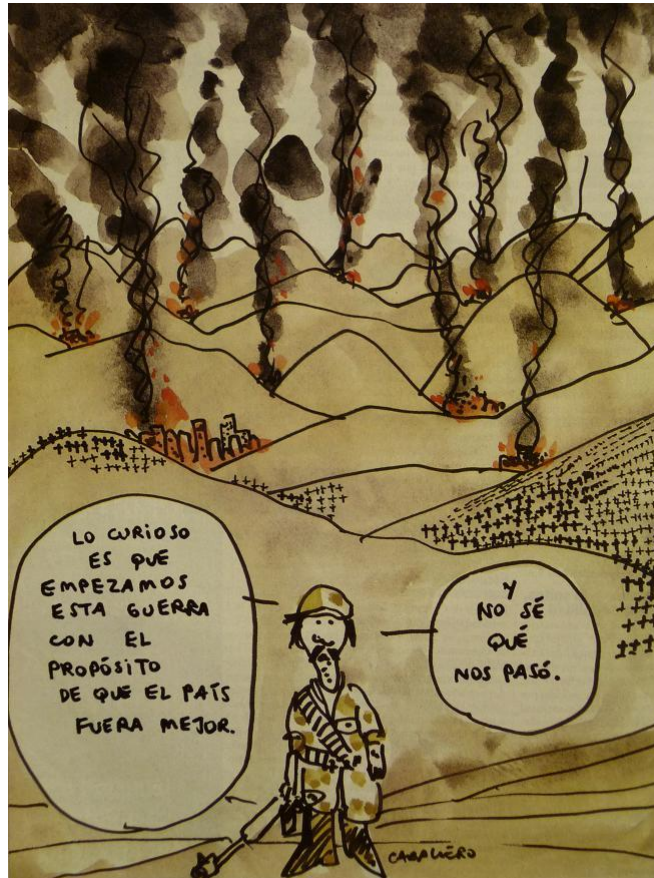 LO CURIOSO
ES QUE
EMPEZAMOS
ESTA GUERRA
CON EL
PROPÓSITO
DE QUE EL PAÍS
FUERA MEJOR.
Y
NO SÉ
QUÉ
NOS PASÓ.
CABALLERO